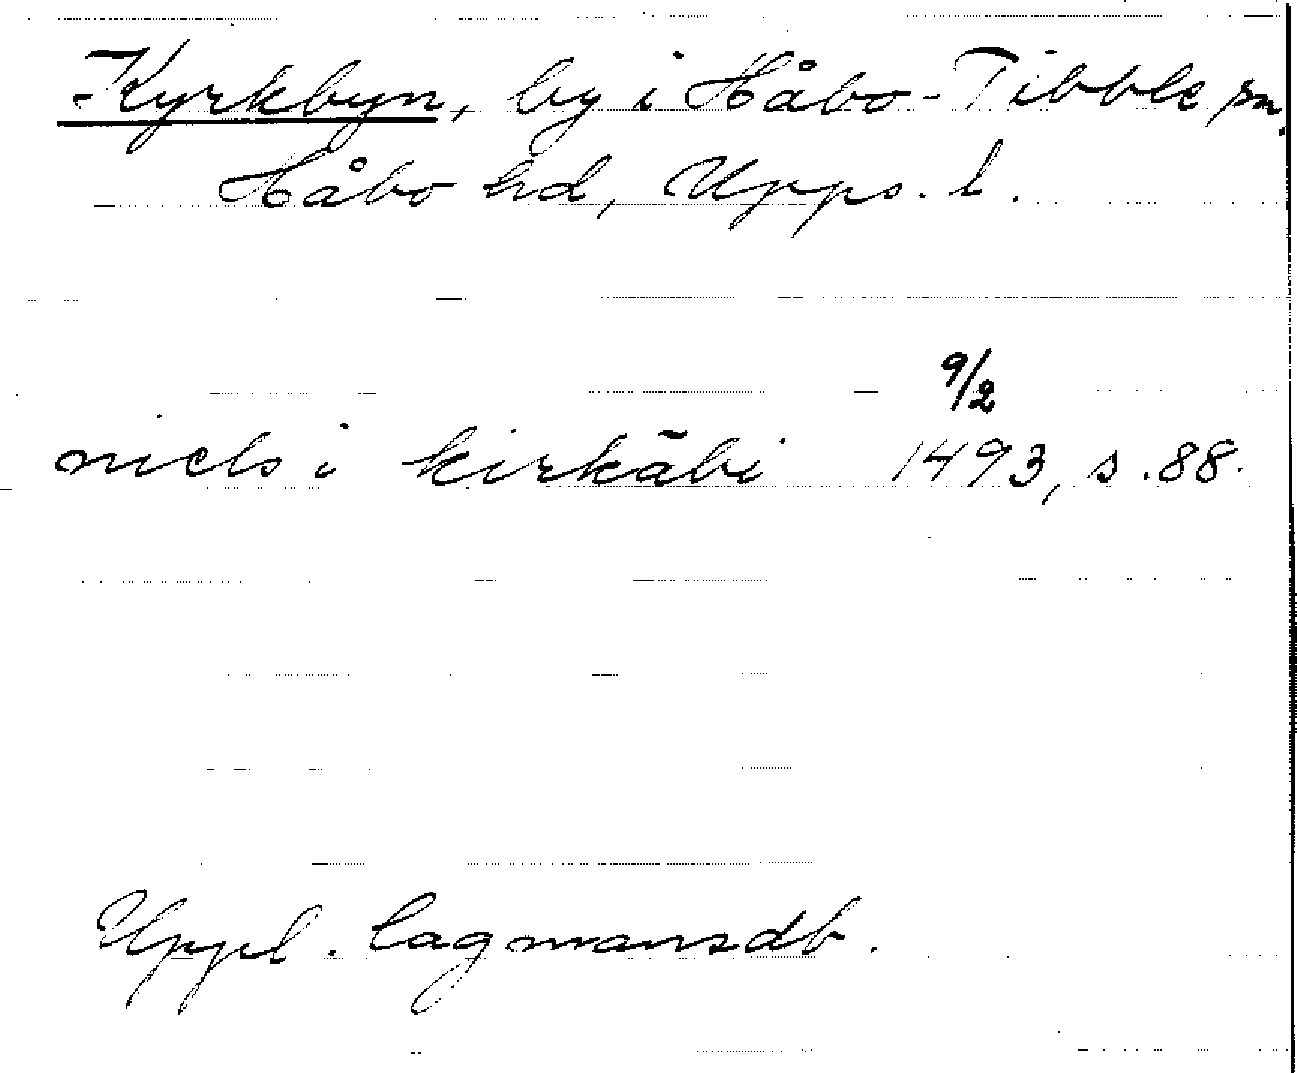 Kyrkbyn, by i Håbo-Tibble sn,
Håbo hd, Upps. l.
9/2
niels i kirkäbi 1493, s. 88.
Uppl. lagmansdb.